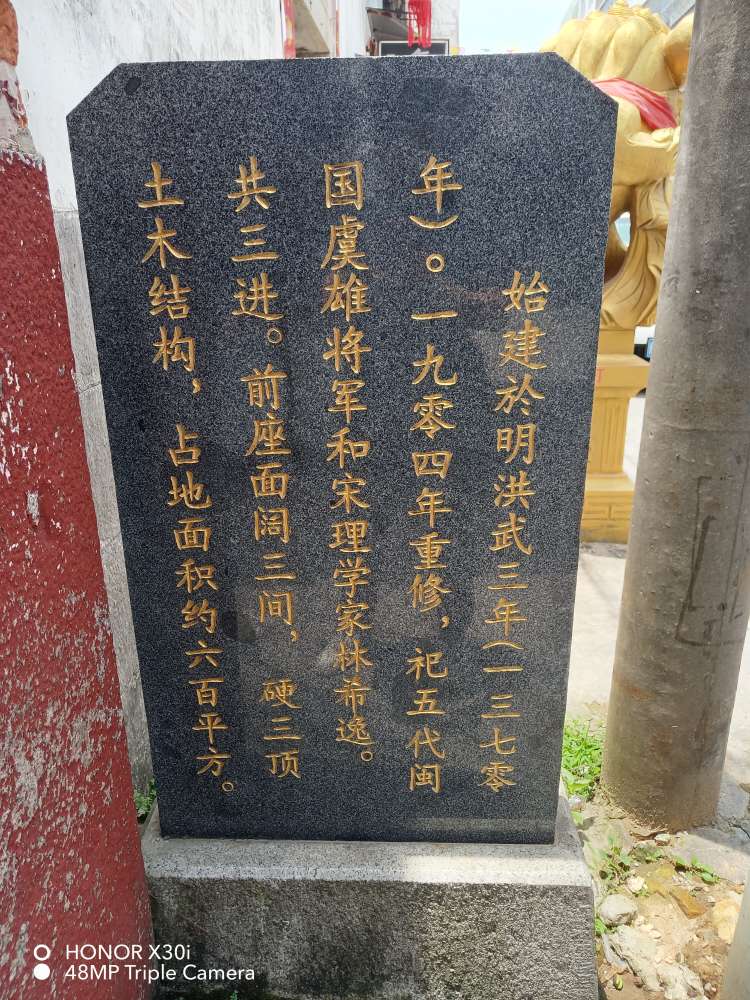 始建於明洪武三年（一三七零
年）。一九零四年重修，祀五代闽
国虞雄将军和宋理学家林希逸。
共三进。前座面阔三间，硬三顶
土木结构，占地面积约六百平方。
HONOR X30i
48MP Triple Camera